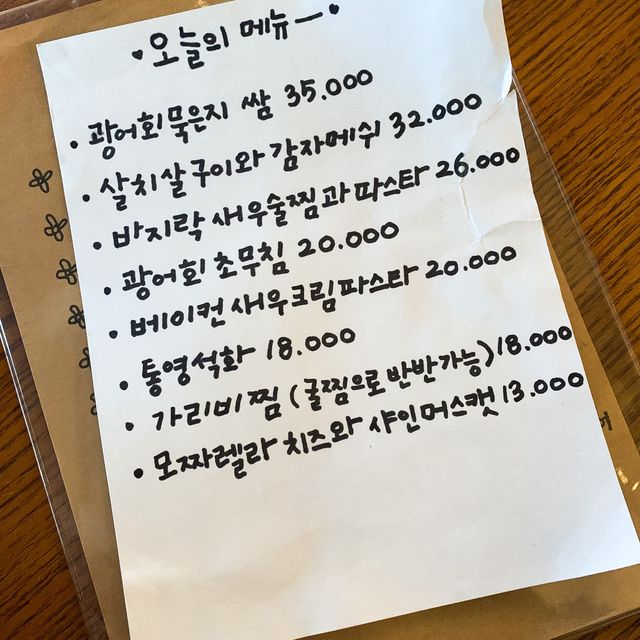 •오늘의 메뉴—•
• 광어회묵은지 쌈 35.000
• 살치살구이와 감자메쉬 32.000
• 바지락 새우술찜과 파스타 26.000
• 광어회 초무침 20.000
• 베이컨새우크림파스타 20.000
• 통영석화 18.000
• 가리비찜 (굴찜으로 반반가능) 18.000
• 모짜렐라 치즈와 샤인머스캣 13.000